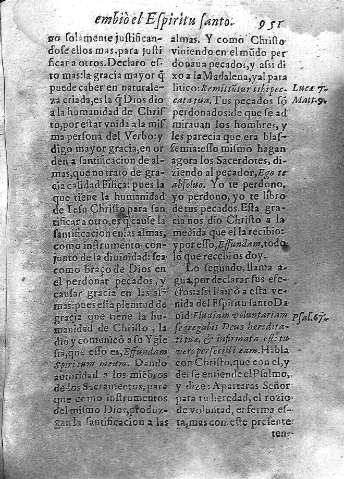 embiò el Espiritu santo. 951
no solamente justifican-
dose ellos mas, para justi
ficar a otros. Declaro es-
to mas: la gracia mayor q̃
puede caber en naturale-
za criada, es la q̃ Dios dio
a la humanidad de Chris
to, por estar vnida a la mis
mo persona del Verbo: y
digo mayor gracia, en or
den a santificacion de al-
mas, que no trato de gra-
cia calidad fisica: pues la
que tiene la humanidad
de Iesu Christo para san
tificar a otros, es q̃ cause la
santificacion en las almas,
como instrumento con-
junto de la diuinidad: sea
como braço de Dios en
el perdonar pecados, y
causar gracia en las al-
mas: pues esta plenitud de
gracia que tiene la hu-
manidad de Christo, la
dio y comunicò a su Ygle
sia, que esso es, Effundam
Spiritum meum. Dando
autoridad a los miẽbros
de los Sacramentos, para
que como instrumentos
del mismo Dios, produz-
gan la santificacion a las
almas. Y como Christo
viniendo en el mũdo per
donaua pecados, y assi di
xo a la Madalena, y al para
litico: Remittũtur tibi pec-
cata tua, Tus pecados sõ
perdonados: de que se ad
mirauan los hombres, y
les parecia que era blas-
femia: esso mismo hagan
agora los Sacerdotes, di-
ziendo al pecador, Ego te
absoluo. Yo te perdono,
yo perdono, yo te libro
de tus pecados. Esta gra-
cia nos dio Christo a la
medida que el la recibio:
y por esso, Effundam, todo
lo que recebi os doy.
Lo segundo, llama a
gua, por declarar sus efe-
ctos: assi llamò a esta ve-
nida del Espiritu santo Da
uid: Pluuiam voluntariam
segregabis Deus heredita-
ti tuæ, & infirmata est: tu
vero perfecisti eam. Habla
con Christo, que con el, y
del se entiende el Psalmo,
y dize: Apartaras Señor
para tu heredad, el rozio
de voluntad, enferma es-
ta, mas con este presente
ten-
Luca 7.
Matt. 9.
Psal. 67.